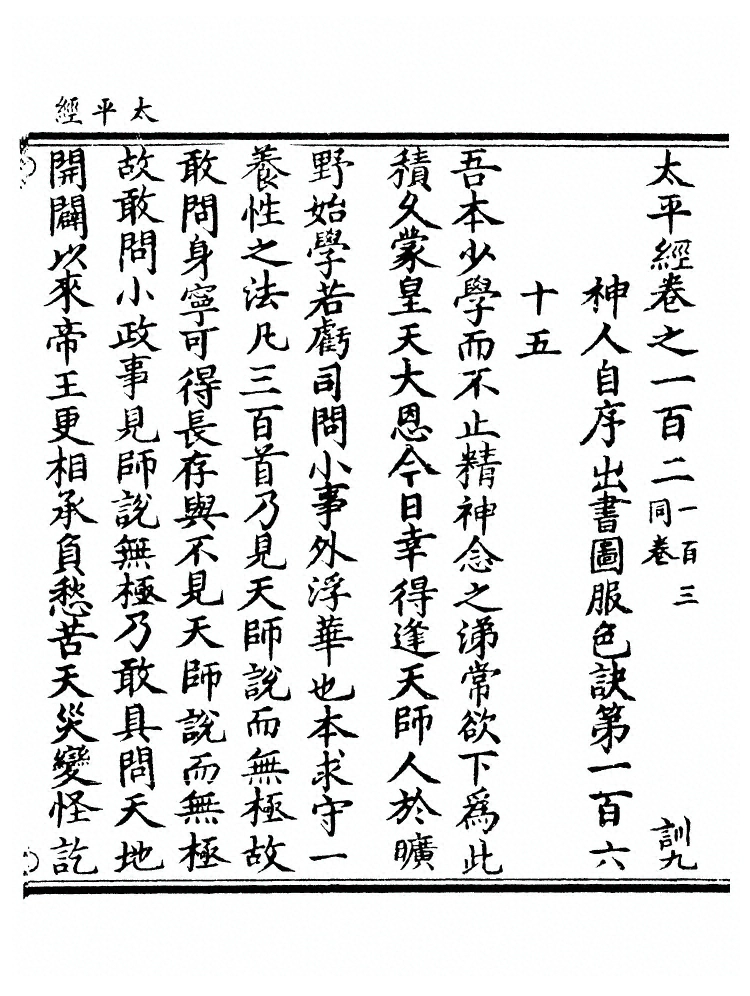 太平經
太平經卷之一百二一百三同卷 訓九
神人自序出書圖服色訣第一百六
十五
吾本少學而不止精神念之涕常欲下爲此
積久蒙皇天大恩今日幸得逢天師人於曠
野始學若虧司問小事外浮華也本求守一
養性之法凡三百首乃見天師說而無極故
敢問身寧可得長存與不見天師說而無極
故敢問小政事見師說無極乃敢具問天地
開闢以來帝王更相承負愁苦天災變怪訖